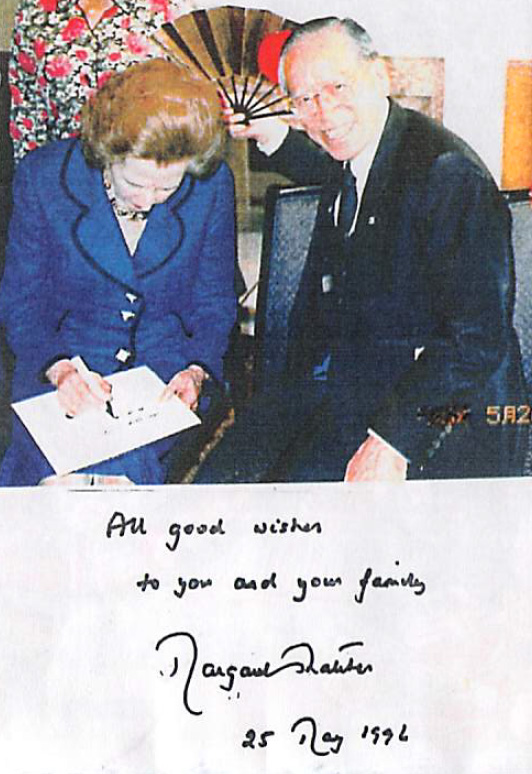 5月2
All good wishes
to you and your family
Margaret Thatcher
25 May